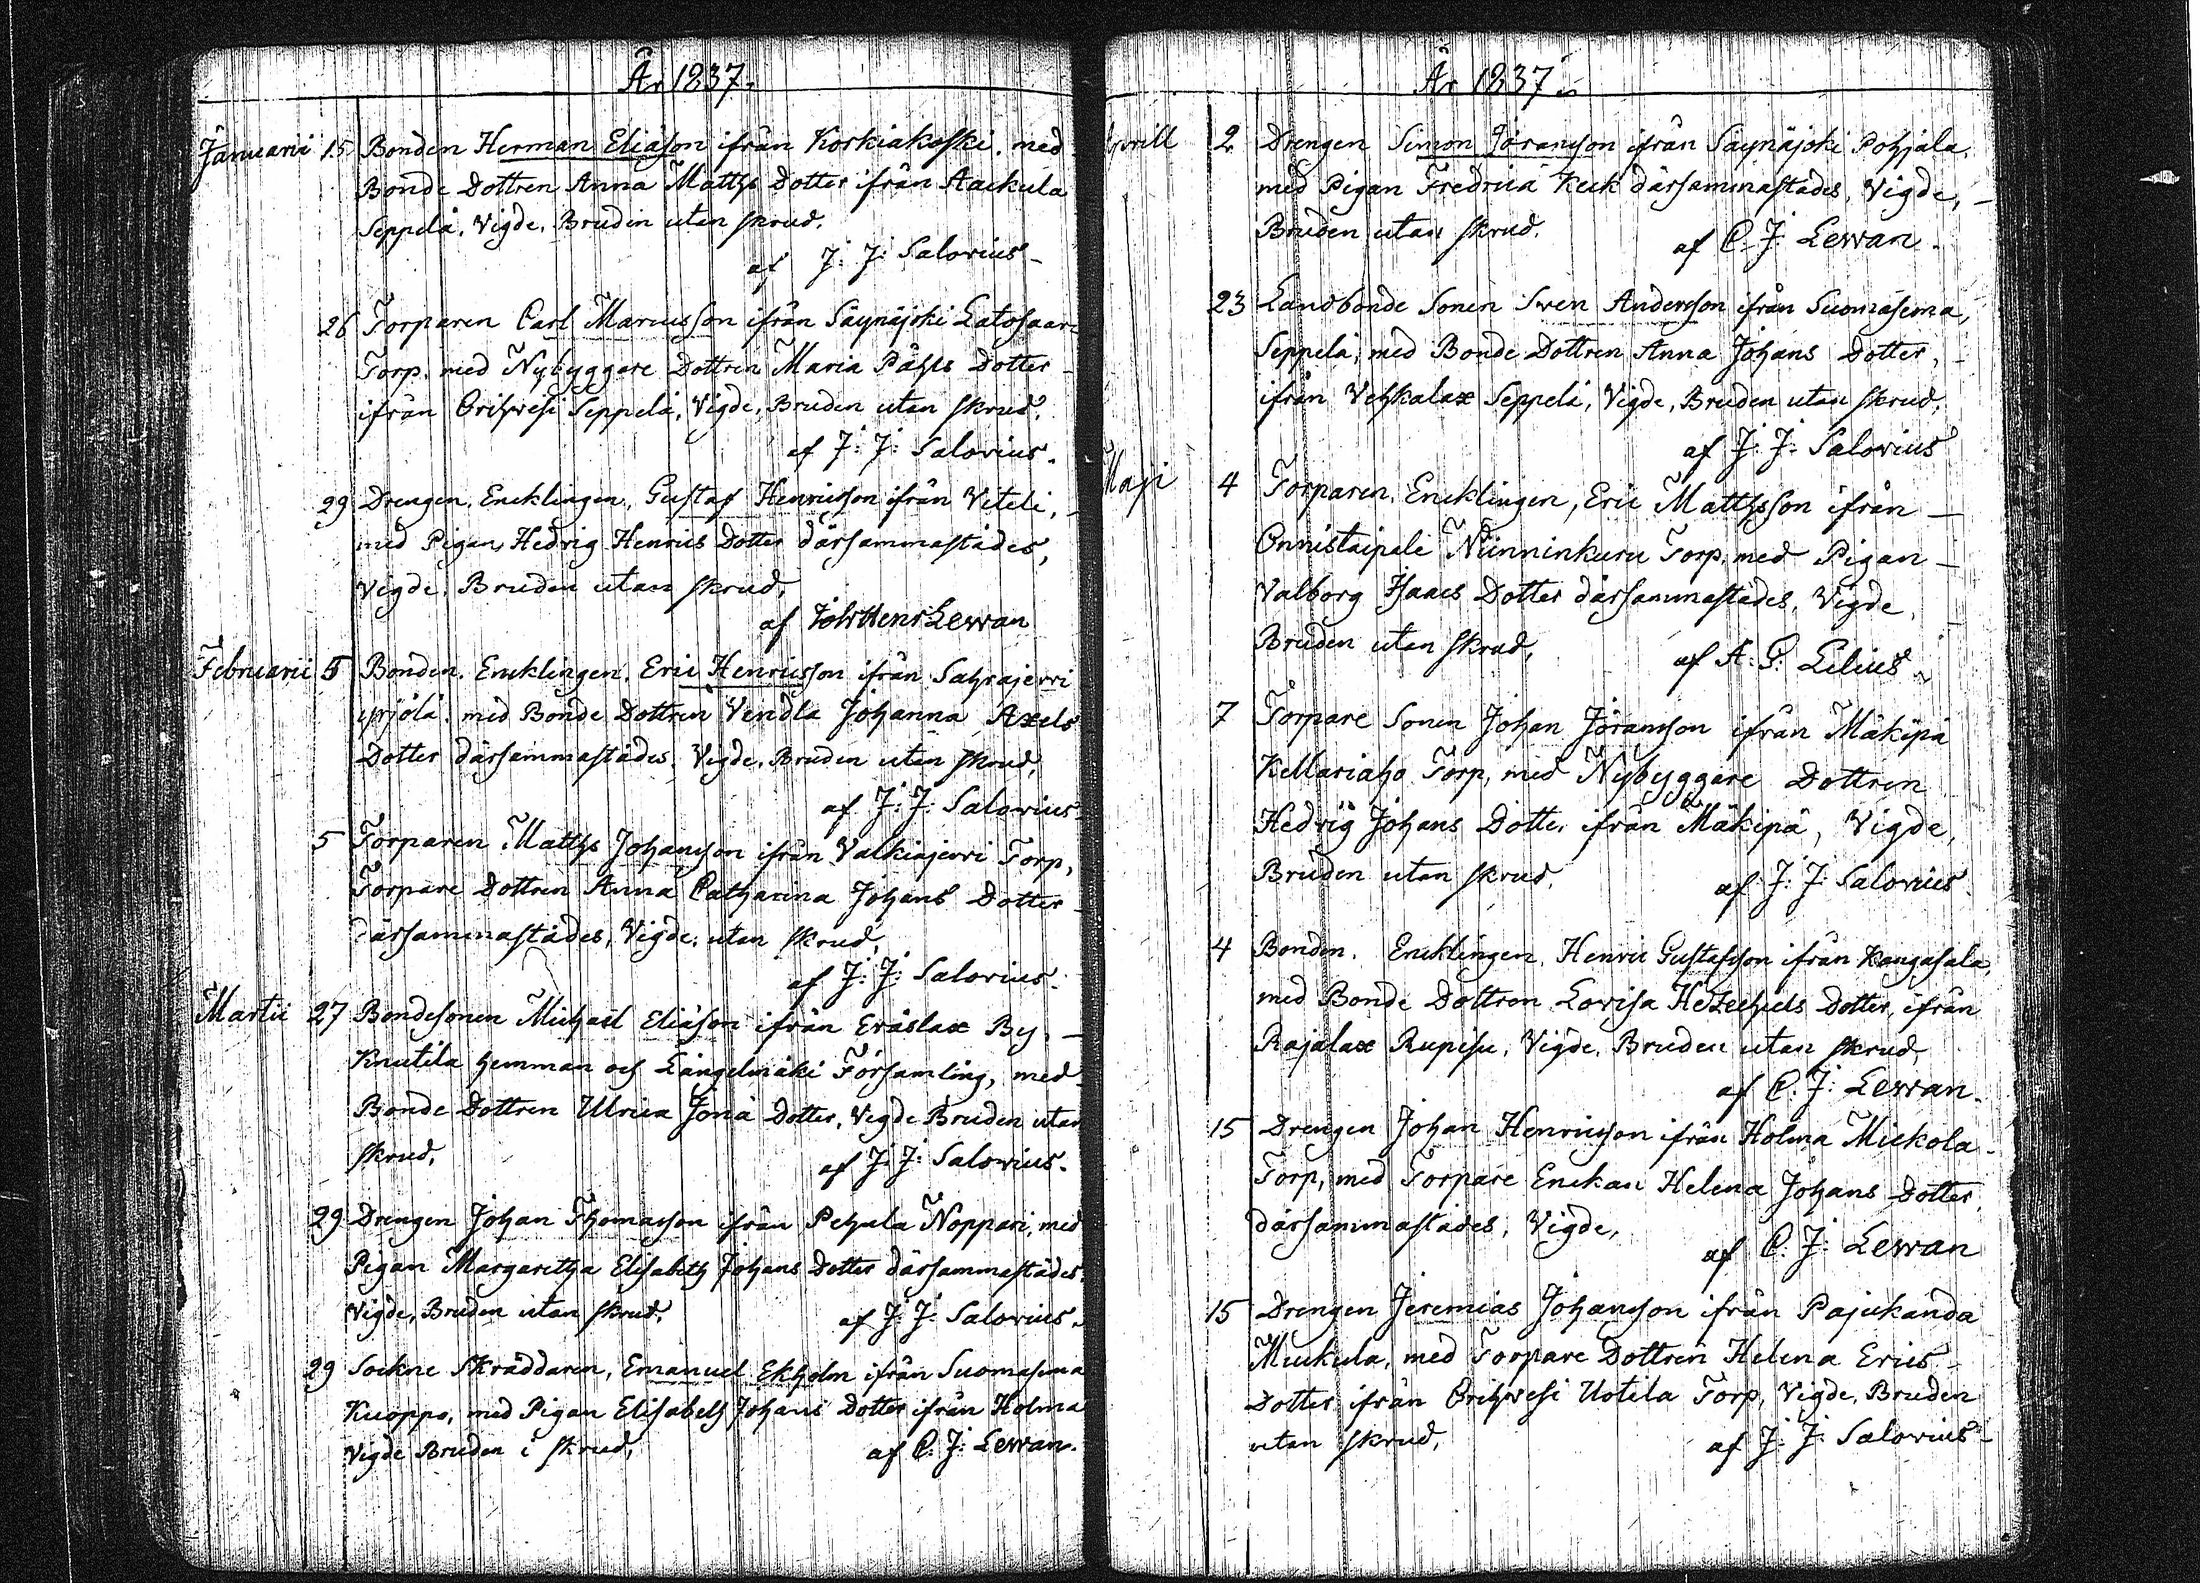 År 1837.
Januarii 15 Bonden Herman Eliæson ifrån Korkiakoski, med
Bonde Dottren Anna Matths Dotter ifrån Aackula
Seppelä, Vigde, Bruden utan skrud.
af J: J: Salovius
26 Torparen Carl Marcusson ifrån Säynäjoki Latosaari
Torp, med Nybyggare Dottren Maria Påhls Dotter
ifrån Orihvesi Seppelä, Vigde, Bruden utan skrud.
af J: J: Salovius.
29 Drengen, Encklingen, Gustaf Henricsson ifrån Viteli,
med Pigan Hedvig Henrics Dotter därsammastädes,
Vigde, Bruden utan skrud,
af Joh: Henr Lewan
Februarii 5 Bonden, Encklingen, Eric Henricsson ifrån Sahrajervi
Yrjölä, med Bonde Dottren Vendla Johanna Axels
Dotter därsammastädes, Vigde, Bruden utan skrud,
af J: J: Salovius
5 Torparen Matths Johansson ifrån Valkiajervi Torp,
Torpare Dottren Anna Catharina Johans Dotter
därsammastädes, Vigde, utan skrud,
af J: J: Salovius.
Martii 27 Bondesonen Michaël Eliæson ifrån Eräslax By,
Knutila hemman och Längelmäki Församling, med
Bonde Dottren Ulrica Jona Dotter, Vigde Bruden utan
skrud,
af J: J: Salovius.
29 Drengen Johan Thomasson ifrån Pehula Noppari, med
Pigan Margaretha Elisabeth Johans Dotter därsammastädes,
Vigde, Bruden utan skrud.
af J: J: Salovius.
29 Sockne Skräddaren, Emanuel Ekholm ifrån Suomasema
Kuoppa, med Pigan Elisabeth Johans Dotter ifrån Holma
Vigde Bruden i skrud,
af C: J: Lewan.
År 1837.
Aprill 2 Drengen Simon Göransson ifrån Säynäjoki Pohjala,
med Pigan Fredrica Keck därsammastädes, Vigde,
Bruden utan skrud.
af C. J: Lewan.
23 Landbonde Sonen Sven Andersson ifrån Suomasema,
Seppelä, med Bonde Dottren Anna Johans Dotter,
ifrån Vehkalax Seppelä, Vigde, Bruden utan skrud,
af J: J: Salovius
Maji 4 Torparen, Encklingen, Eric Matthsson ifrån
Onnistaipale Niinninkuru Torp, med Pigan
Valborg Isaacs Dotter därsammastädes, Vigde,
Bruden utan skrud,
af A: G: Lilius
7 Torpare Sonen Johan Jöransson ifrån Mäkipä
Kellariaho Torp, med Nybyggare Dottren
Hedvig Johans Dotter ifrån Mäkipä, Vigde,
Bruden utan skrud,
af J: J: Salovius
4 Bonden, Encklingen, Henric Gustafsson ifrån Kangasala,
med Bonde Dottren Lovisa Hezechiels Dotter, ifrån
Rajalax Rupisu, Vigde, Bruden utan skrud,
af C. J: Lewan.
15 Drengen Johan Henricsson ifrån Holma Mickola
Torp, med Torpare Enckan Helena Johans Dotter,
därsammastädes, Vigde,
af C. J: Lewan
15 Drengen Jeremias Johansson ifrån Pajukanda
Muckula, med Torpare Dottren Helena Erics
Dotter ifrån Orihvesi Uotila Torp, Vigde, Bruden
utan skrud,
af J: J: Salovius